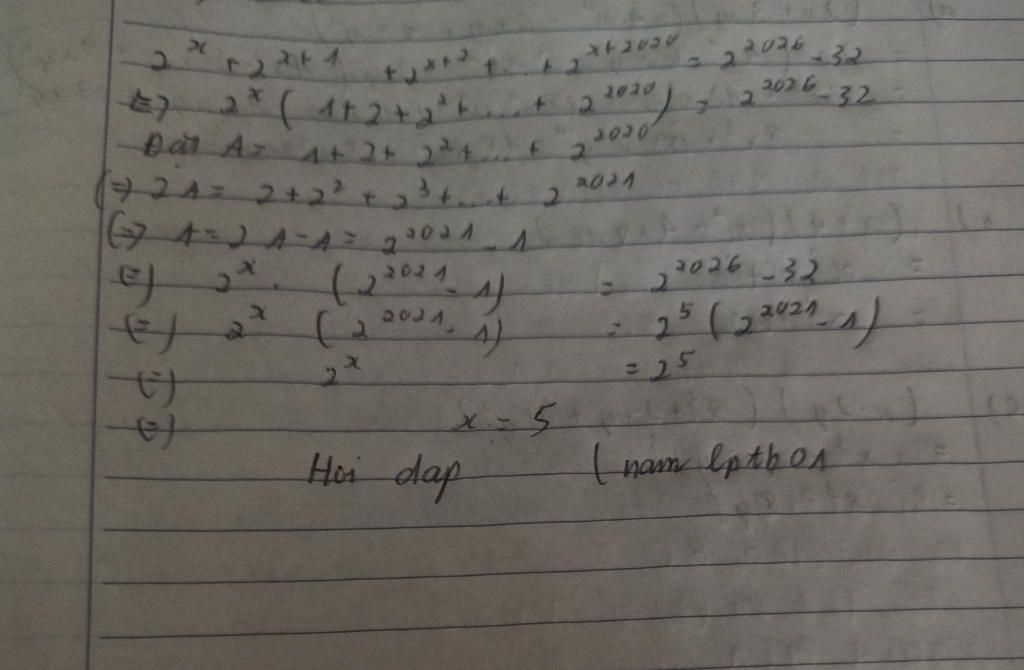 2^x + 2^{x+1} + 2^{x+2} + ... + 2^{x+2020} = 2^{2026} - 32
(=) 2^x ( 1 + 2 + 2^2 + ... + 2^{2020} ) = 2^{2026} - 32
Đặt A = 1 + 2 + 2^2 + ... + 2^{2020}
(=) 2A = 2 + 2^2 + 2^3 + ... + 2^{2021}
(=) A = 2A - A = 2^{2021} - 1
(=) 2^x . (2^{2021} - 1) = 2^{2026} - 32
(=) 2^x (2^{2021} - 1) = 2^5 (2^{2021} - 1)
(=) 2^x = 2^5
(=) x = 5
Hoi dap ( nam lptb01